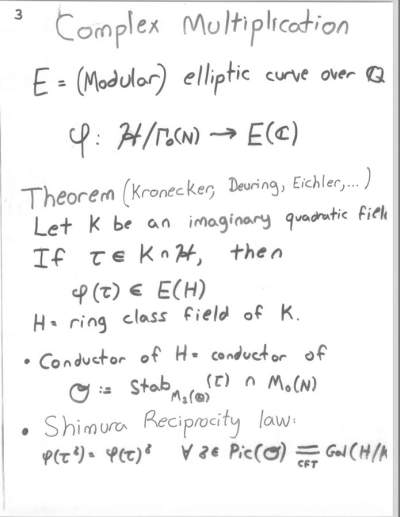 3
Complex Multiplication
E = (Modular) elliptic curve over ℚ
φ: ℋ/Γ₀(N) → E(ℂ)
Theorem (Kronecker, Deuring, Eichler,...)
Let K be an imaginary quadratic field
If τ ∈ K ∩ ℋ, then
φ(τ) ∈ E(H)
H = ring class field of K.
• Conductor of H = conductor of
𝒪 := Stab_{M₂(ℚ)}(τ) ∩ M₀(N)
• Shimura Reciprocity law:
φ(τ^∂) = φ(τ)^∂ ∀ ∂ ∈ Pic(𝒪) =_{CFT} Gal(H/K